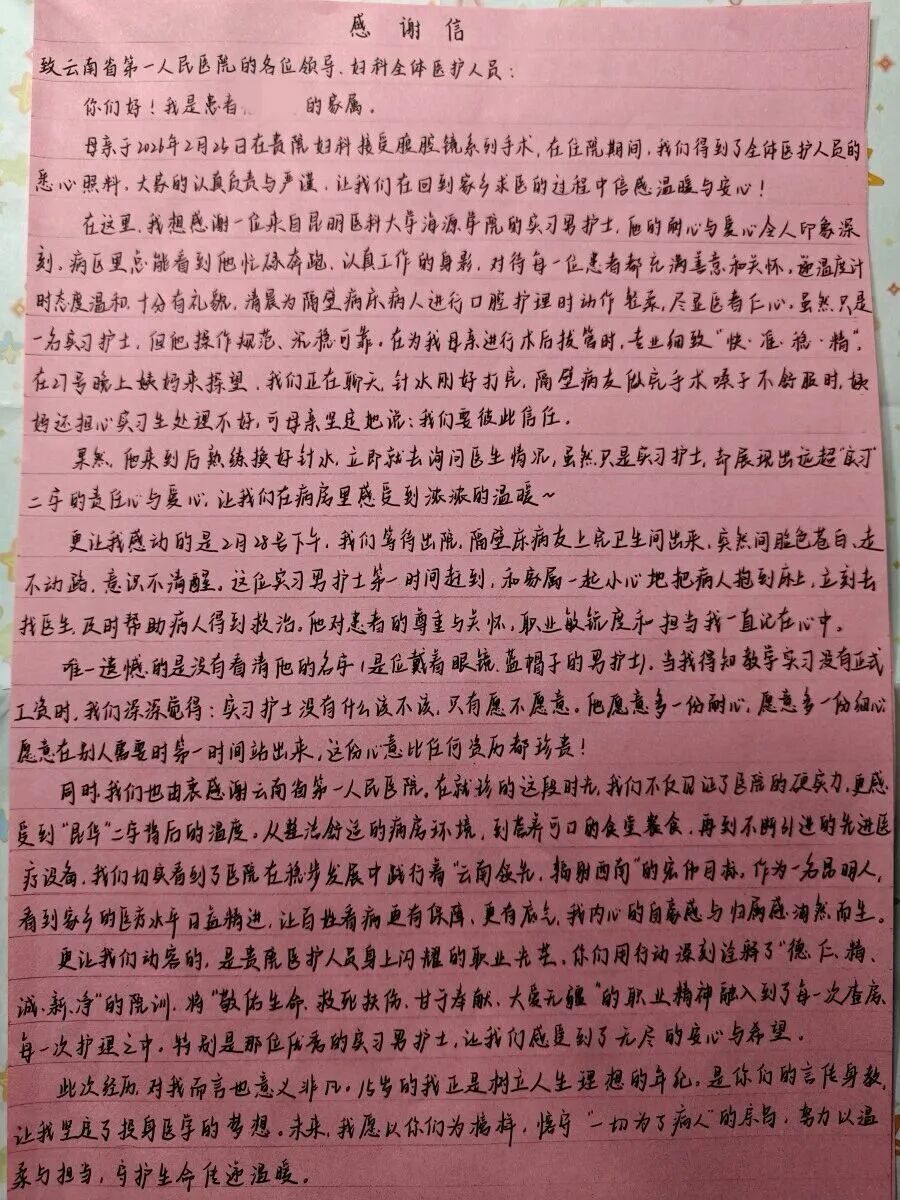 感谢信
致云南省第一人民医院的各位领导、妇科全体医护人员：
你们好！我是患者 的家属。
母亲于2026年2月25日在贵院妇科接受腹腔镜系列手术，在住院期间，我们得到了全体医护人员的
悉心照料，大家的认真负责与严谨，让我们在回到家乡求医的过程中倍感温暖与安心！
在这里，我想感谢一位来自昆明医科大学海源学院的实习男护士，他的耐心与爱心令人印象深
刻。病区里总能看到他忙碌奔跑、认真工作的身影，对待每一位患者都充满善意和关怀，递温度计
时态度温和、十分有礼貌，清晨为隔壁病床病人进行口腔护理时动作轻柔，尽显医者仁心。虽然只是
一名实习护士，但他操作规范、沉稳可靠。在为我母亲进行术后拔管时，专业细致“快·准·稳·精”，
在27号晚上姨妈来探望，我们正在聊天，针水刚好打完，隔壁病友做完手术嗓子不舒服时，姨
妈还担心实习生处理不好，可母亲坚定地说：我们要彼此信任。
果然，他来到后熟练换好针水，立即就去询问医生情况，虽然只是实习护士，却展现出远超“实习”
二字的责任心与爱心，让我们在病房里感受到浓浓的温暖~
更让我感动的是2月28号下午，我们等待出院，隔壁床病友上完卫生间出来，突然间脸色苍白、走
不动路，意识不清醒。这位实习男护士第一时间赶到，和家属一起小心地把病人抱到床上，立刻去
找医生，及时帮助病人得到救治。他对患者的尊重与关怀，职业敏锐度和担当我一直记在心中。
唯一遗憾的是没有看清他的名字（是位戴着眼镜、蓝帽子的男护士），当我得知教学实习没有正式
工资时，我们深深觉得：实习护士没有什么该不该，只有愿不愿意。他愿意多一份耐心，愿意多一份细心
愿意在别人需要时第一时间站出来，这份心意比任何资历都珍贵！
同时，我们也由衷感谢云南省第一人民医院。在就诊的这段时光，我们不仅见证了医院的硬实力，更感
受到“昆华”二字背后的温度。从整洁舒适的病房环境，到营养可口的食堂餐食，再到不断引进的先进医
疗设备，我们切实看到了医院在稳步发展中践行着“云南领先，辐射西南”的宏伟目标。作为一名昆明人，
看到家乡的医疗水平日益精进，让百姓看病更有保障、更有底气，我内心的自豪感与归属感油然而生。
更让我们动容的，是贵院医护人员身上闪耀的职业光芒。你们用行动深刻诠释了“德、仁、精、
诚、新、净”的院训，将“敬佑生命、救死扶伤、甘于奉献、大爱无疆”的职业精神融入到了每一次查房、
每一次护理之中。特别是那位优秀的实习男护士，让我们感受到了无尽的安心与希望。
此次经历，对我而言也意义非凡。15岁的我正是树立人生理想的年纪，是你们的言传身教，
让我坚定了投身医学的梦想。未来，我愿以你们为榜样，恪守“一切为了病人”的宗旨，努力以温
柔与担当，守护生命传递温暖。